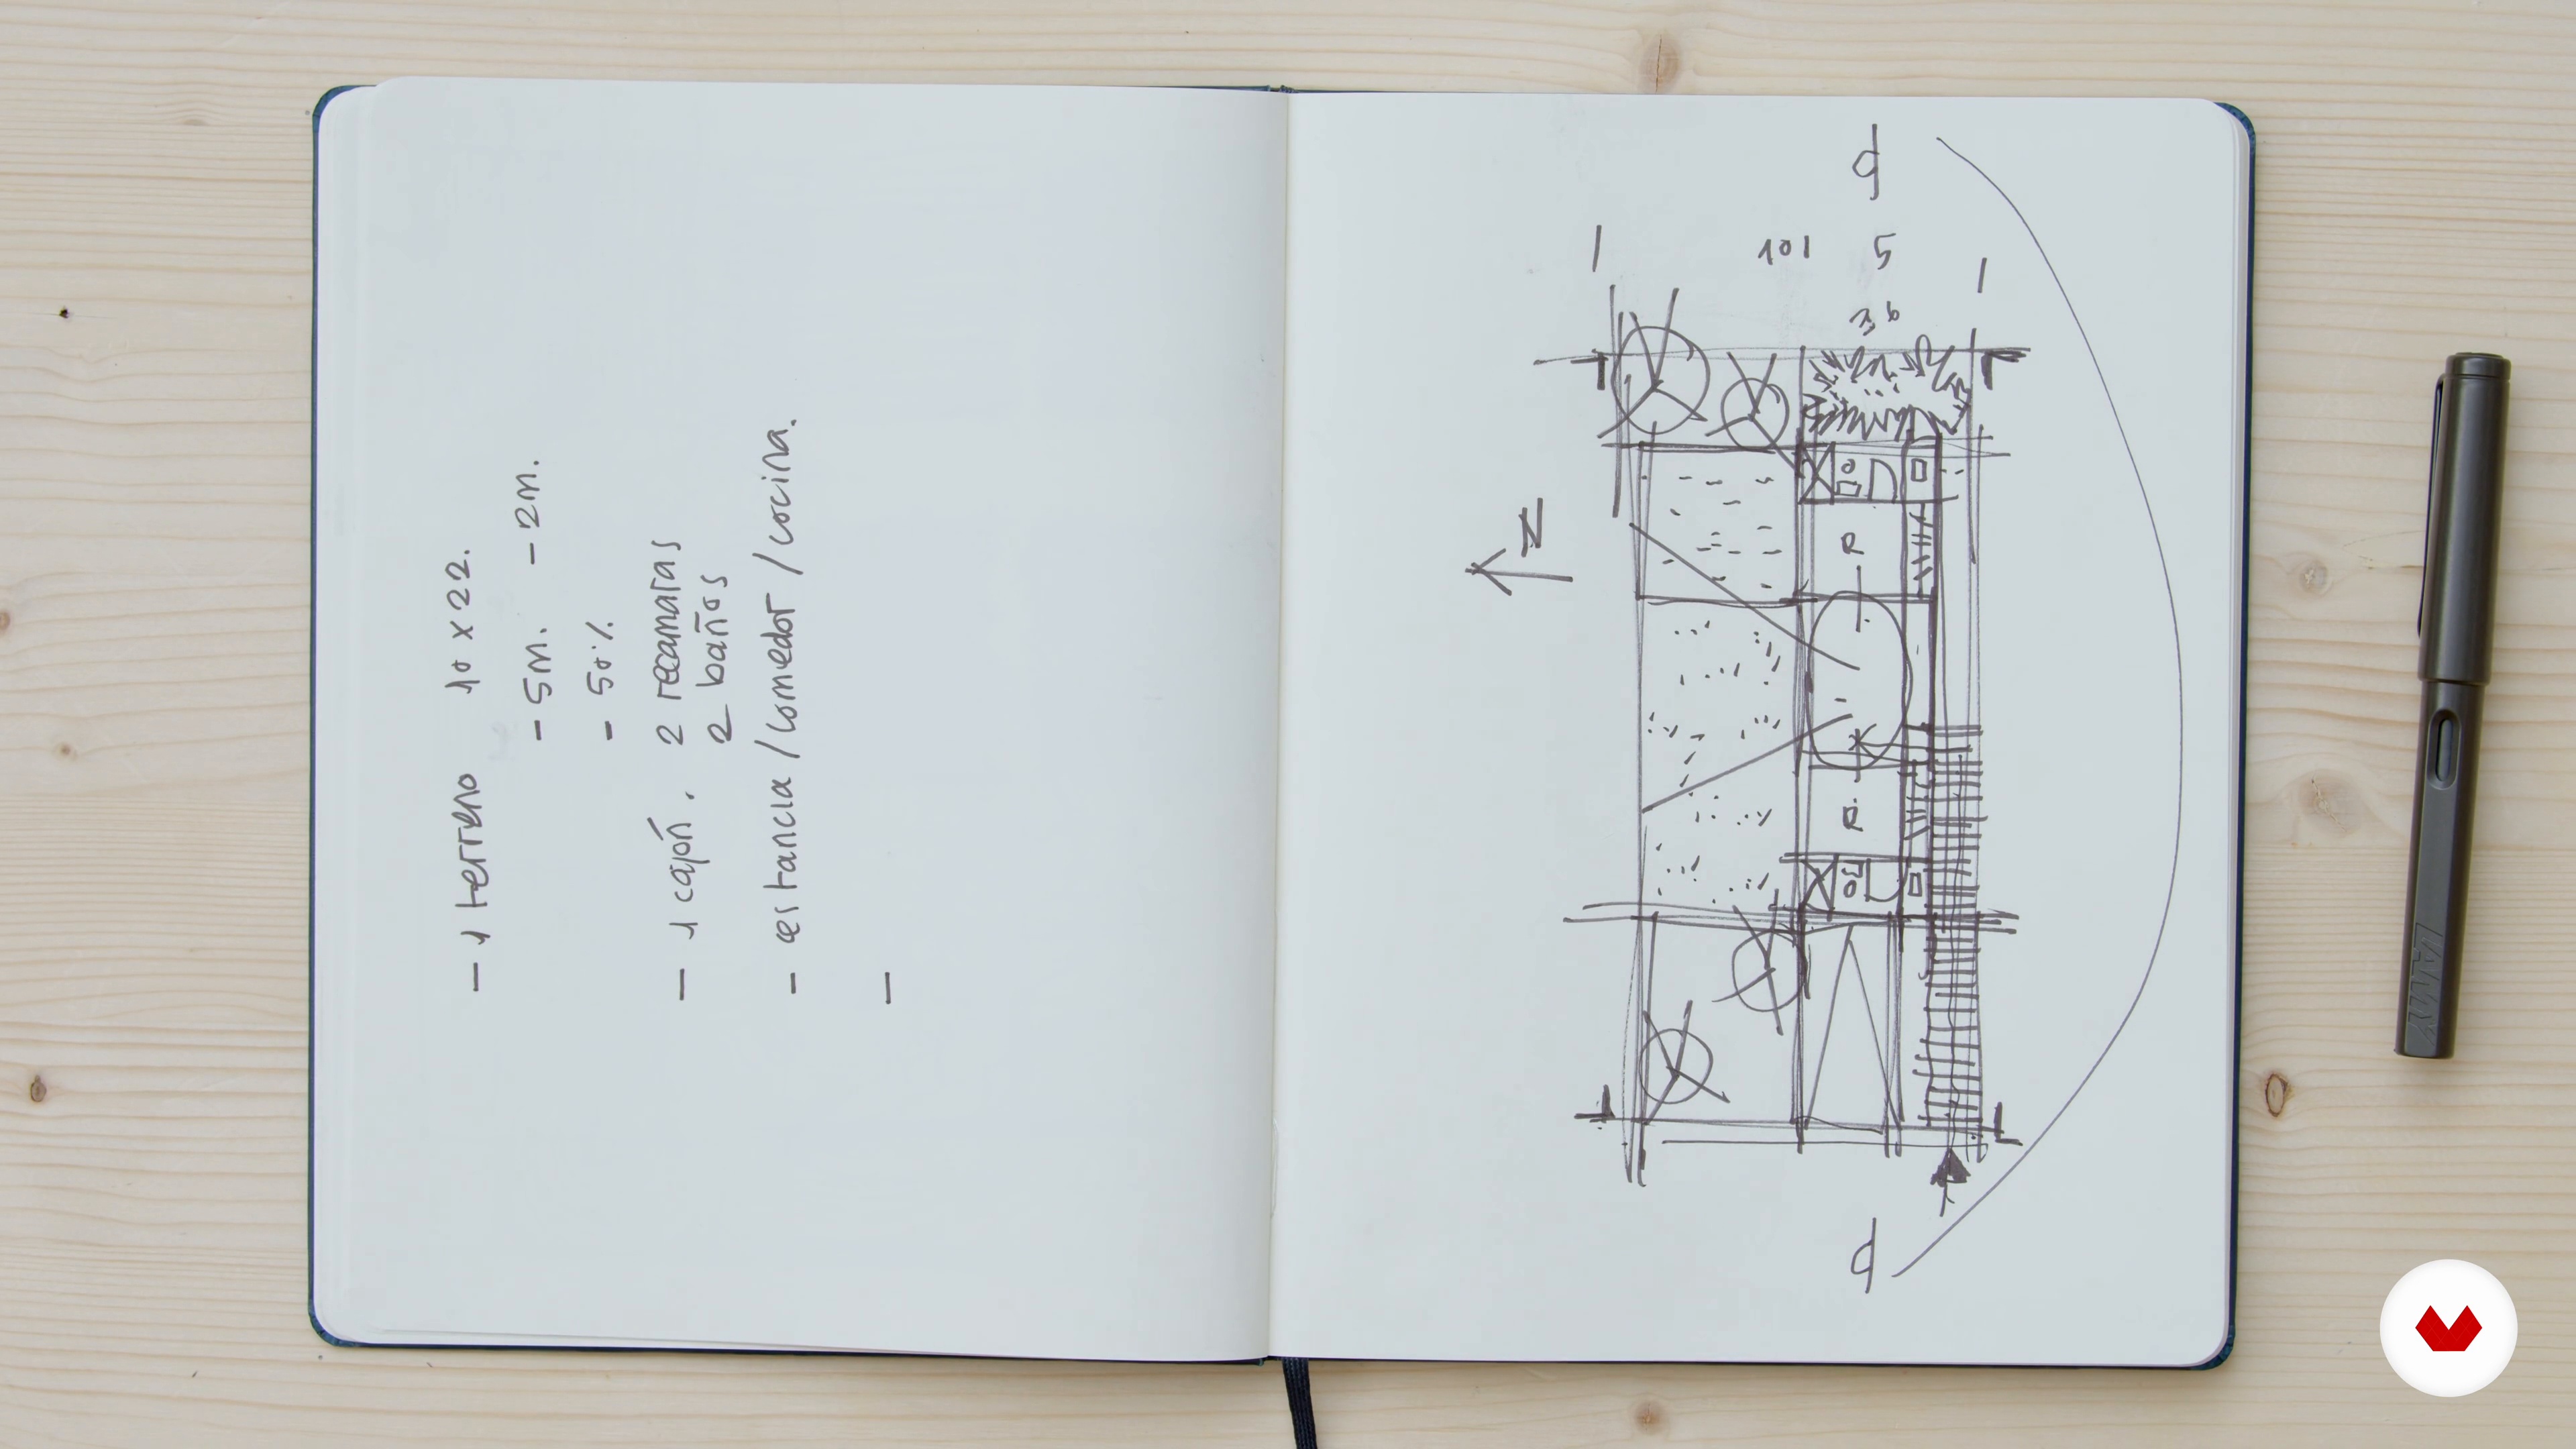 - 1 terreno 10 x 22.
- 5m. - 2m.
- 50%
- 1 cajón. 2 recamaras
2 baños
- estancia / comedor / cocina.
-
N
5
R
R
LAMY